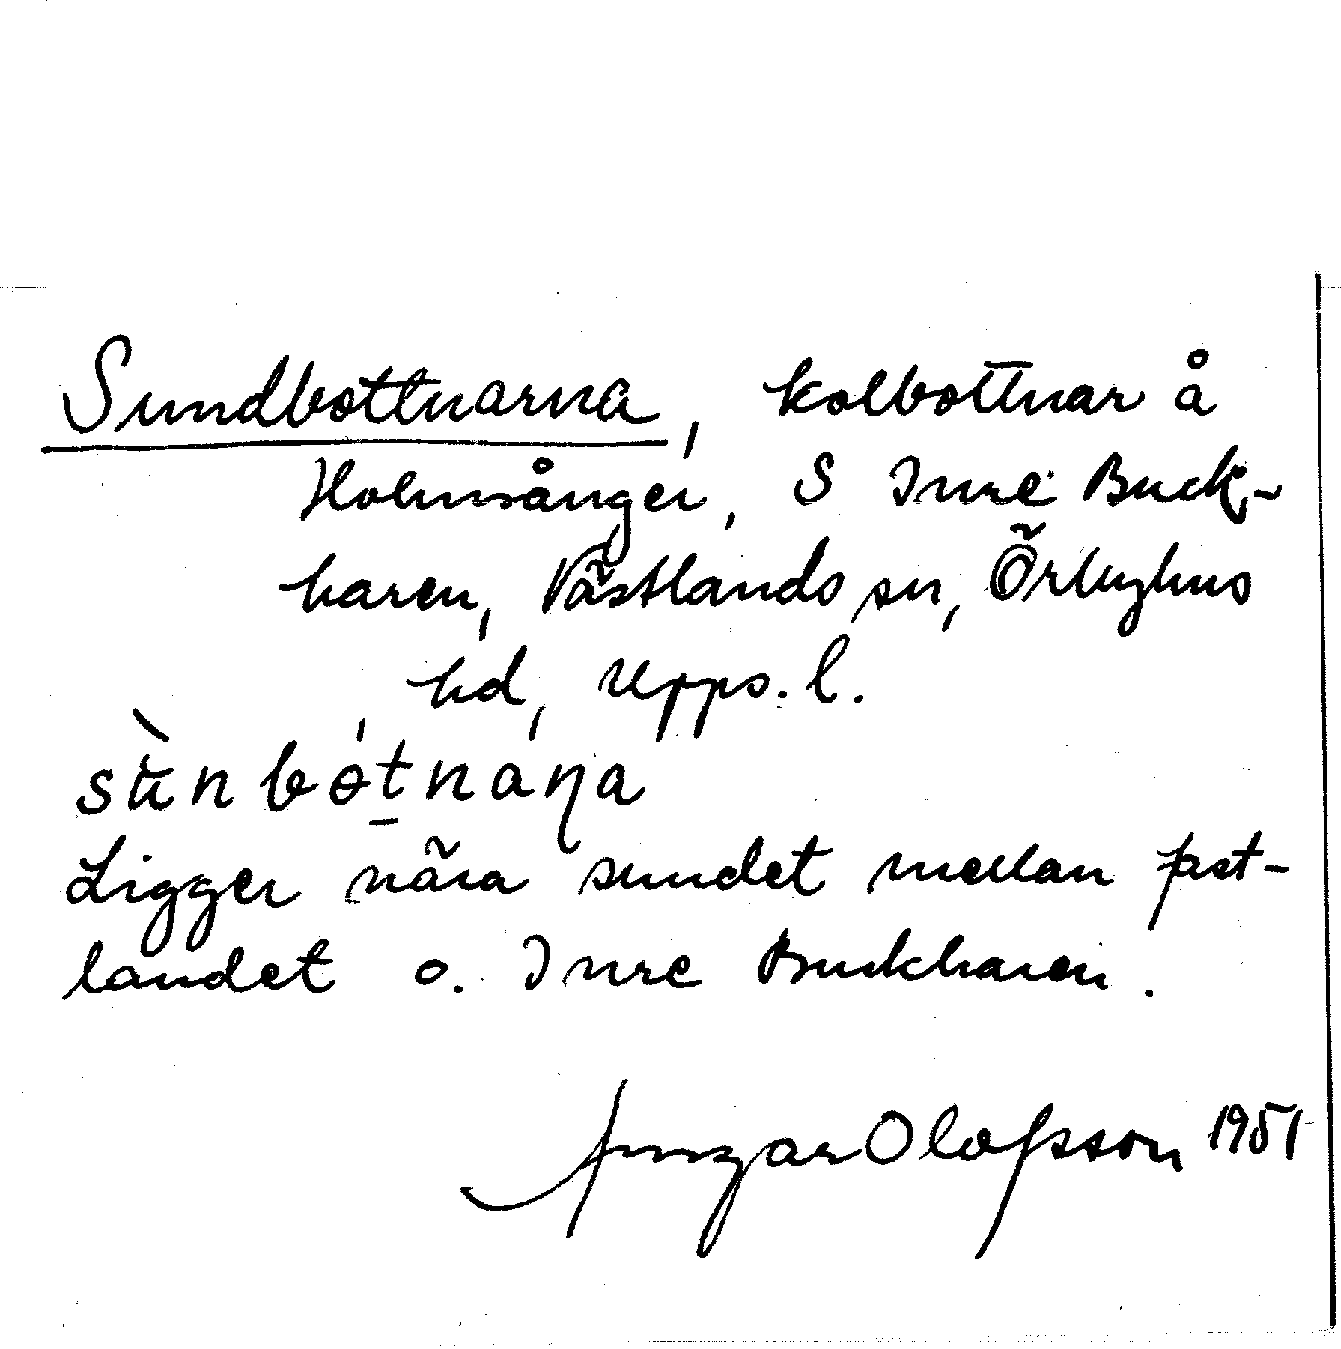 Sundbottnarna, kolbottnar å
Holmsånger, S Inre Buck-
haren, Västlands sn, Örbyhus
hd, Upps. l.
sùnbòtnaṇa
Ligger nära sundet mellan fast-
landet o. Inre Buckharen.
Ansgar Olofsson 1951